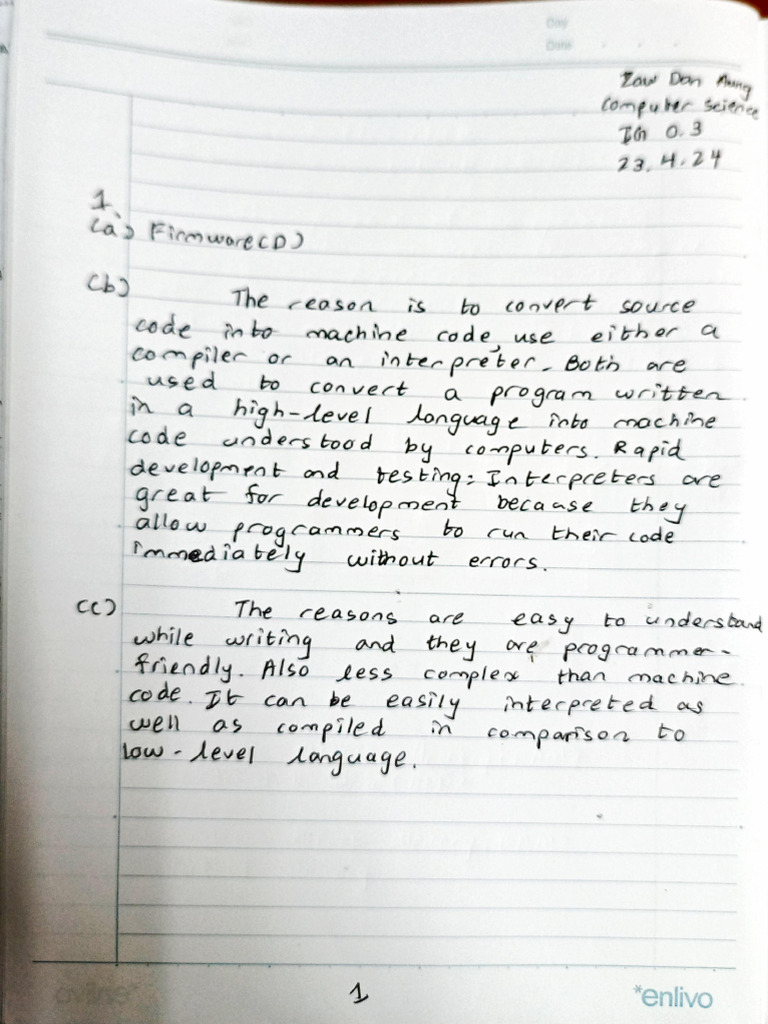 Day
Date
Zaw Dan Aung
Computer Science
IG 0.3
23.4.24
1.
(a) Firmware(D)
(b) The reason is to convert source
code into machine code, use either a
compiler or an interpreter. Both are
used to convert a program written
in a high-level language into machine
code understood by computers. Rapid
development and testing: Interpreters are
great for development because they
allow programmers to run their code
immediately without errors.
(c) The reasons are easy to understand
while writing and they are programmer-
friendly. Also less complex than machine
code. It can be easily interpreted as
well as compiled in comparison to
low-level language.
1
*enlivo